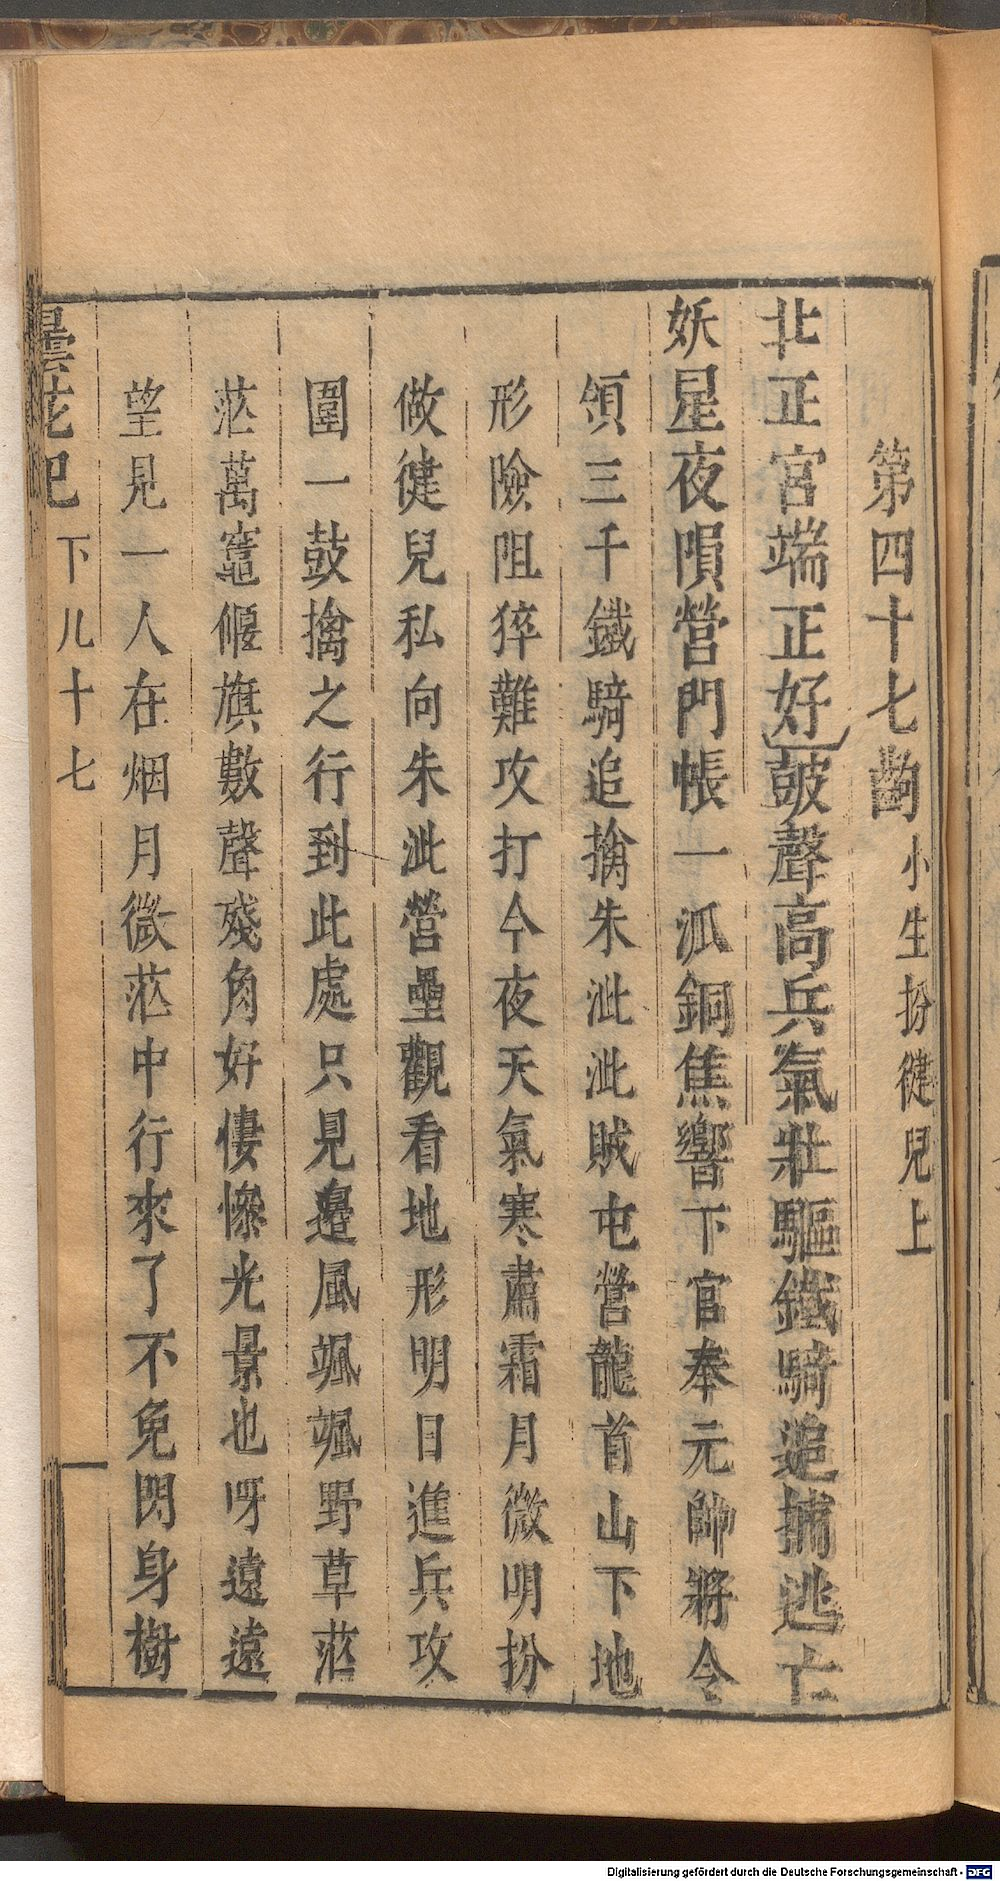 第四十七齣 小生扮徤兒上
北正宮端正好 鼓聲高兵氣壯驅鐵騎追捕逃亡
妖星夜隕營門帳一派銅焦響下官奉元帥將令
領三千鐵騎追擒朱泚泚賊屯營龍首山下地
形險阻猝難攻打今夜天氣寒肅霜月微明扮
做徤兒私向朱泚營壘觀看地形明日進兵攻
圍一鼓擒之行到此處只見邊風颯颯野草茫
茫萬竈偃旗數聲殘角好悽慘光景也呀遠遠
望見一人在烟月微茫中行來了不免閃身樹
曇花記 下 八十七
Digitalisierung gefördert durch die Deutsche Forschungsgemeinschaft - DFG